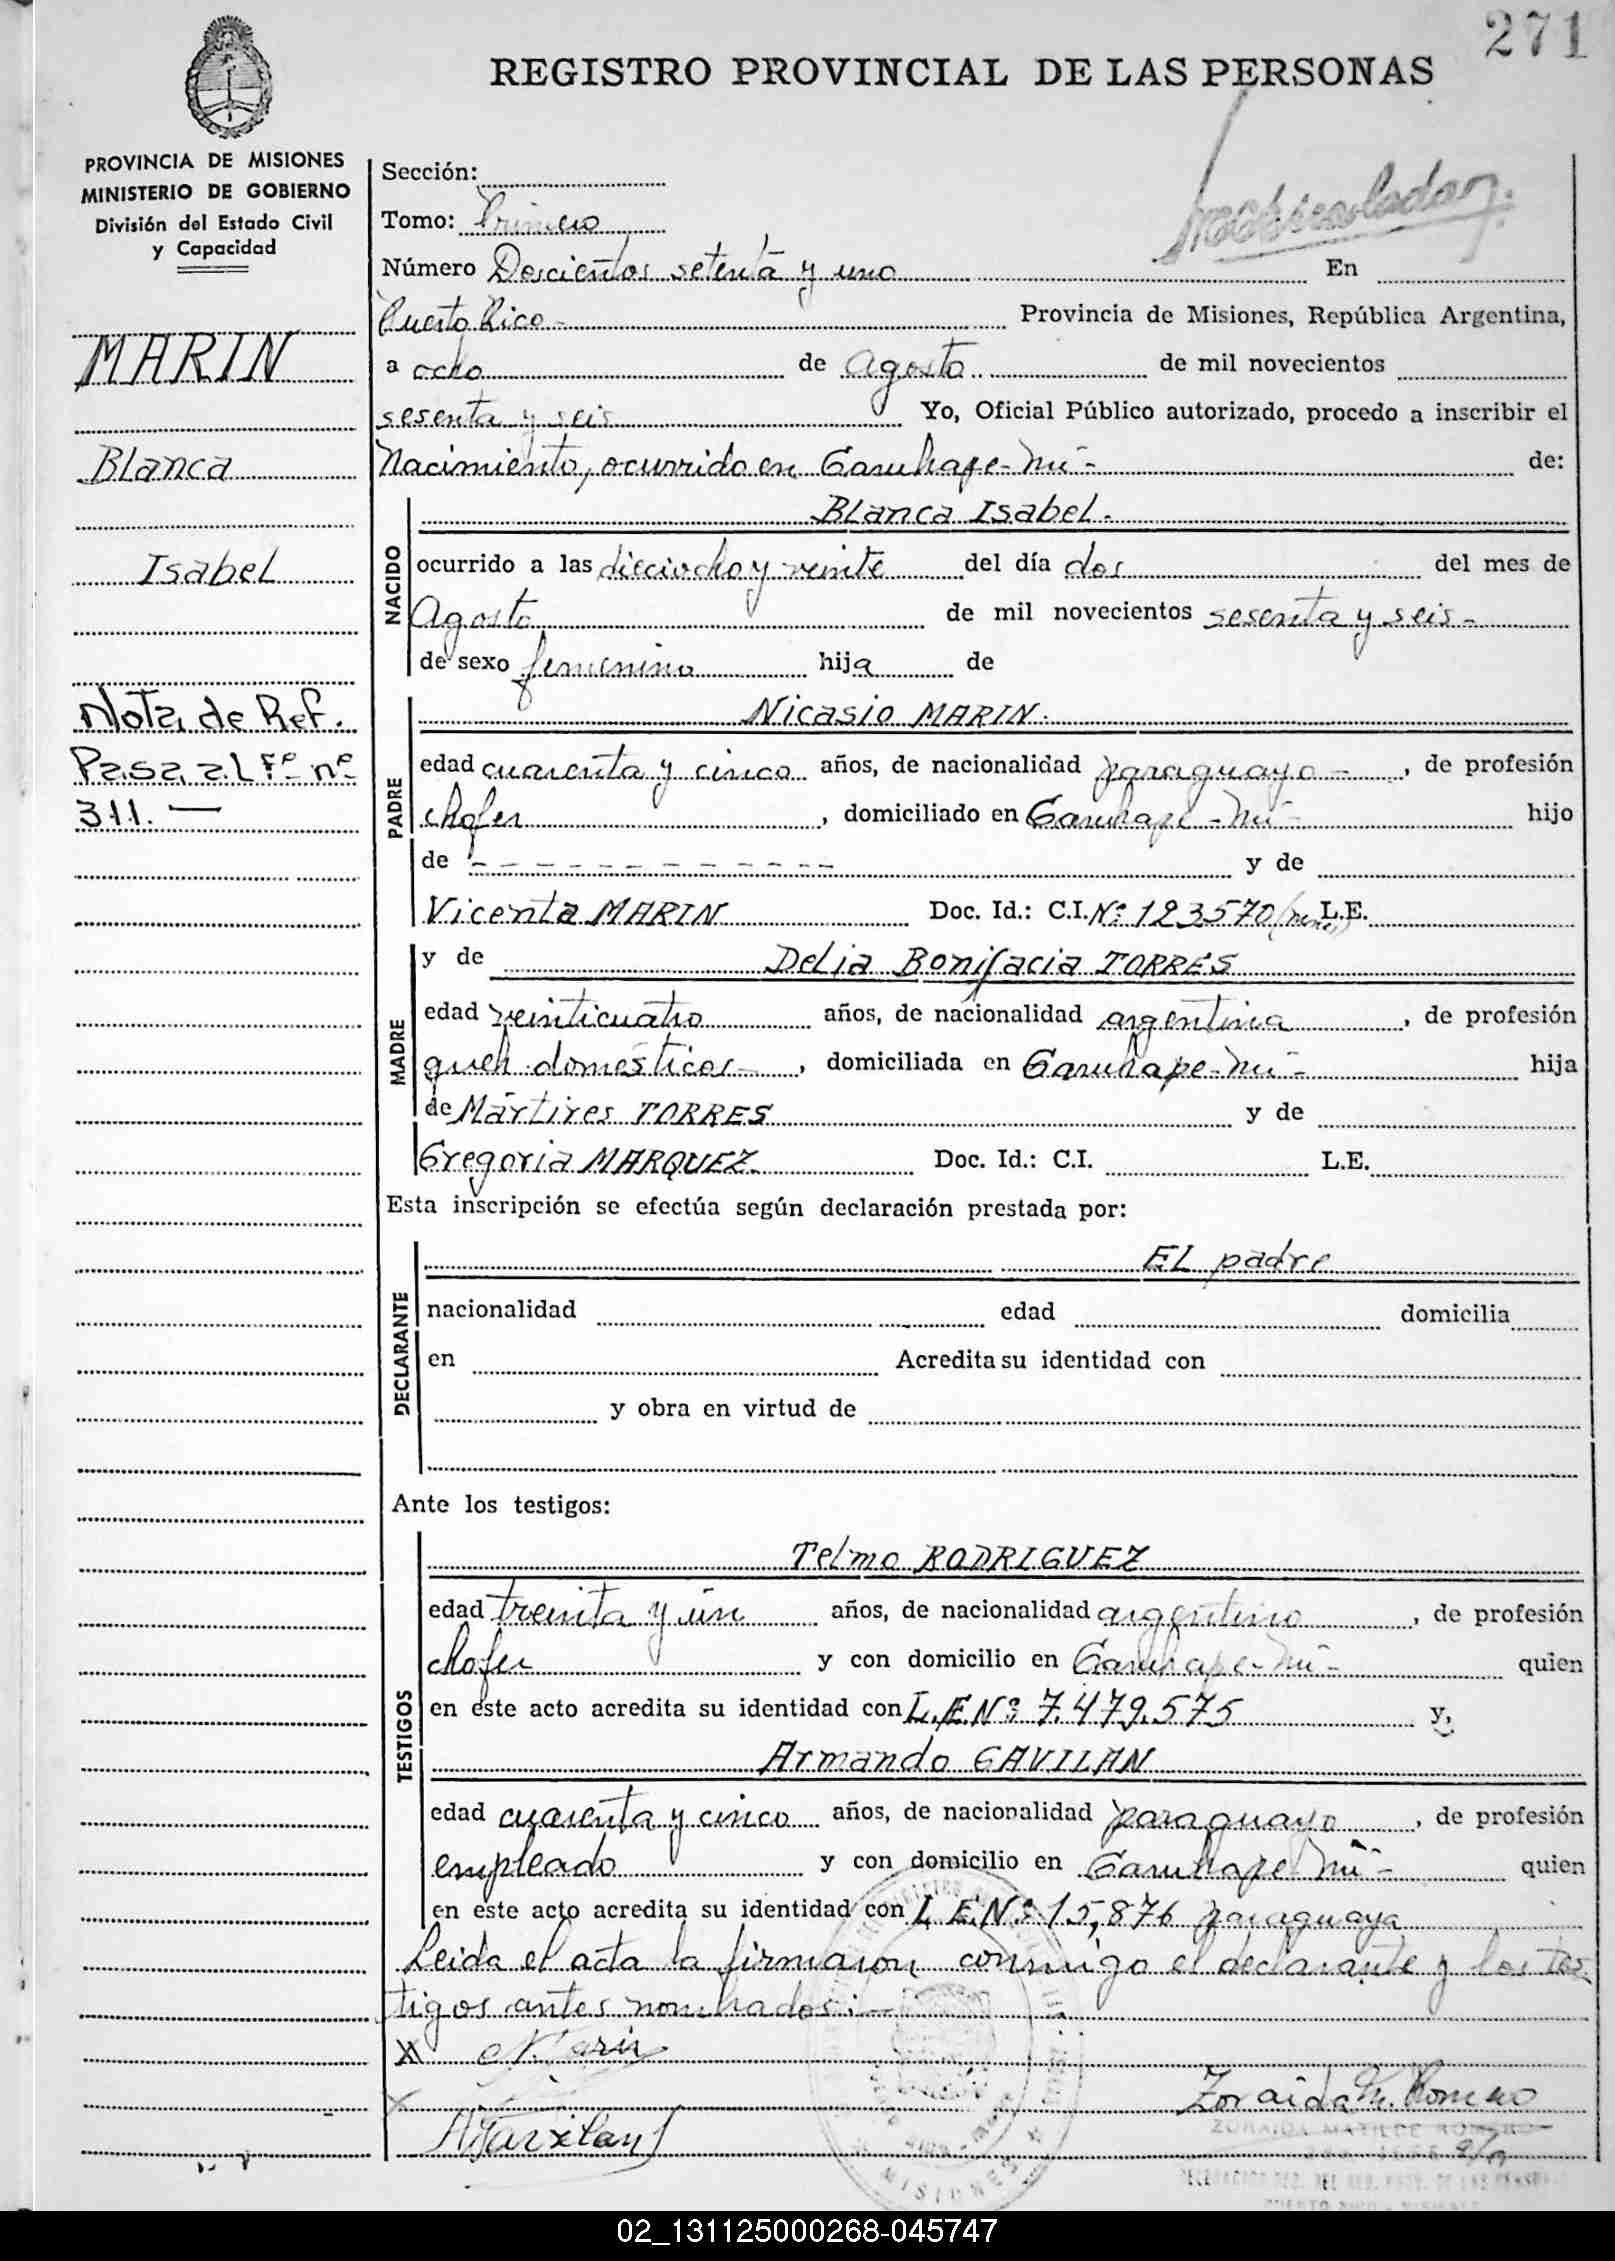 271
REGISTRO PROVINCIAL DE LAS PERSONAS
PROVINCIA DE MISIONES
MINISTERIO DE GOBIERNO
División del Estado Civil
y Capacidad
MARIN
Blanca
Isabel
Nota de Ref.
Pasa al Fº nº
311. —
Sección:
Tomo: Primero
Número Doscientos setenta y uno En
Puerto Rico - Provincia de Misiones, República Argentina,
a ocho de Agosto de mil novecientos
sesenta y seis Yo, Oficial Público autorizado, procedo a inscribir el
Nacimiento, ocurrido en Garuhape-Mi- de:
NACIDO
Blanca Isabel.
ocurrido a las dieciocho y veinte del día dos del mes de
Agosto de mil novecientos sesenta y seis -
de sexo femenino hija de
PADRE
Nicasio MARIN.
edad cuarenta y cinco años, de nacionalidad paraguayo -, de profesión
chofer, domiciliado en Garuhape-Mi- hijo
de - - - - - - - - - - - - - y de
Vicenta MARIN Doc. Id.: C.I. Nº 123570 L.E.
MADRE
y de Delia Bonifacia TORRES
edad veinticuatro años, de nacionalidad argentina, de profesión
queh. domésticos -, domiciliada en Garuhape-Mi- hija
de Mártires TORRES y de
Gregoria MARQUEZ Doc. Id.: C.I. L.E.
Esta inscripción se efectúa según declaración prestada por:
DECLARANTE
El padre
nacionalidad edad domicilia
en Acredita su identidad con
y obra en virtud de
Ante los testigos:
TESTIGOS
Telmo RODRIGUEZ
edad treinta y un años, de nacionalidad argentino, de profesión
chofer y con domicilio en Garuhape-Mi- quien
en este acto acredita su identidad con L.E.Nº: 7.479.575 y,
Armando GAVILAN
edad cuarenta y cinco años, de nacionalidad paraguayo, de profesión
empleado y con domicilio en Garuhape Mi- quien
en este acto acredita su identidad con L.E.Nº: 15,876 paraguaya
Leida el acta la firmaron conmigo el declarante y los tes
tigos antes nombrados: -
X N Marin
Zoraida M. Romero
X
AGavilan
ZORAIDA MATILDE ROMERO
MISIONES
02_131125000268-045747